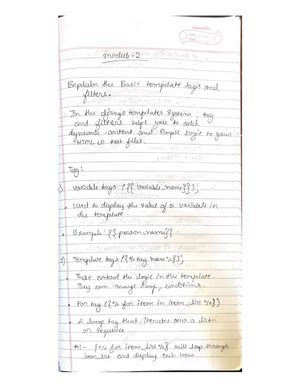 modul-2
Explain the Basic template tags and
filters.
In the django templates System, tag
and filters helps you to add
dynamic content and simple logic to your
HTML or text files.
Tag:
1) Variable tags ({{ variable_name}});
• Used to display the value of a variable in
the template.
• Example: {{ person_name}}
2) Template tags ({% tag name %});
• These control the logic in the template.
They can
loops, conditions.
• For tag ({% for item in item_list %})
• A loop tag that iterates over a list
or sequence.
{% for item_list %} will loop through
item_list and display each item.